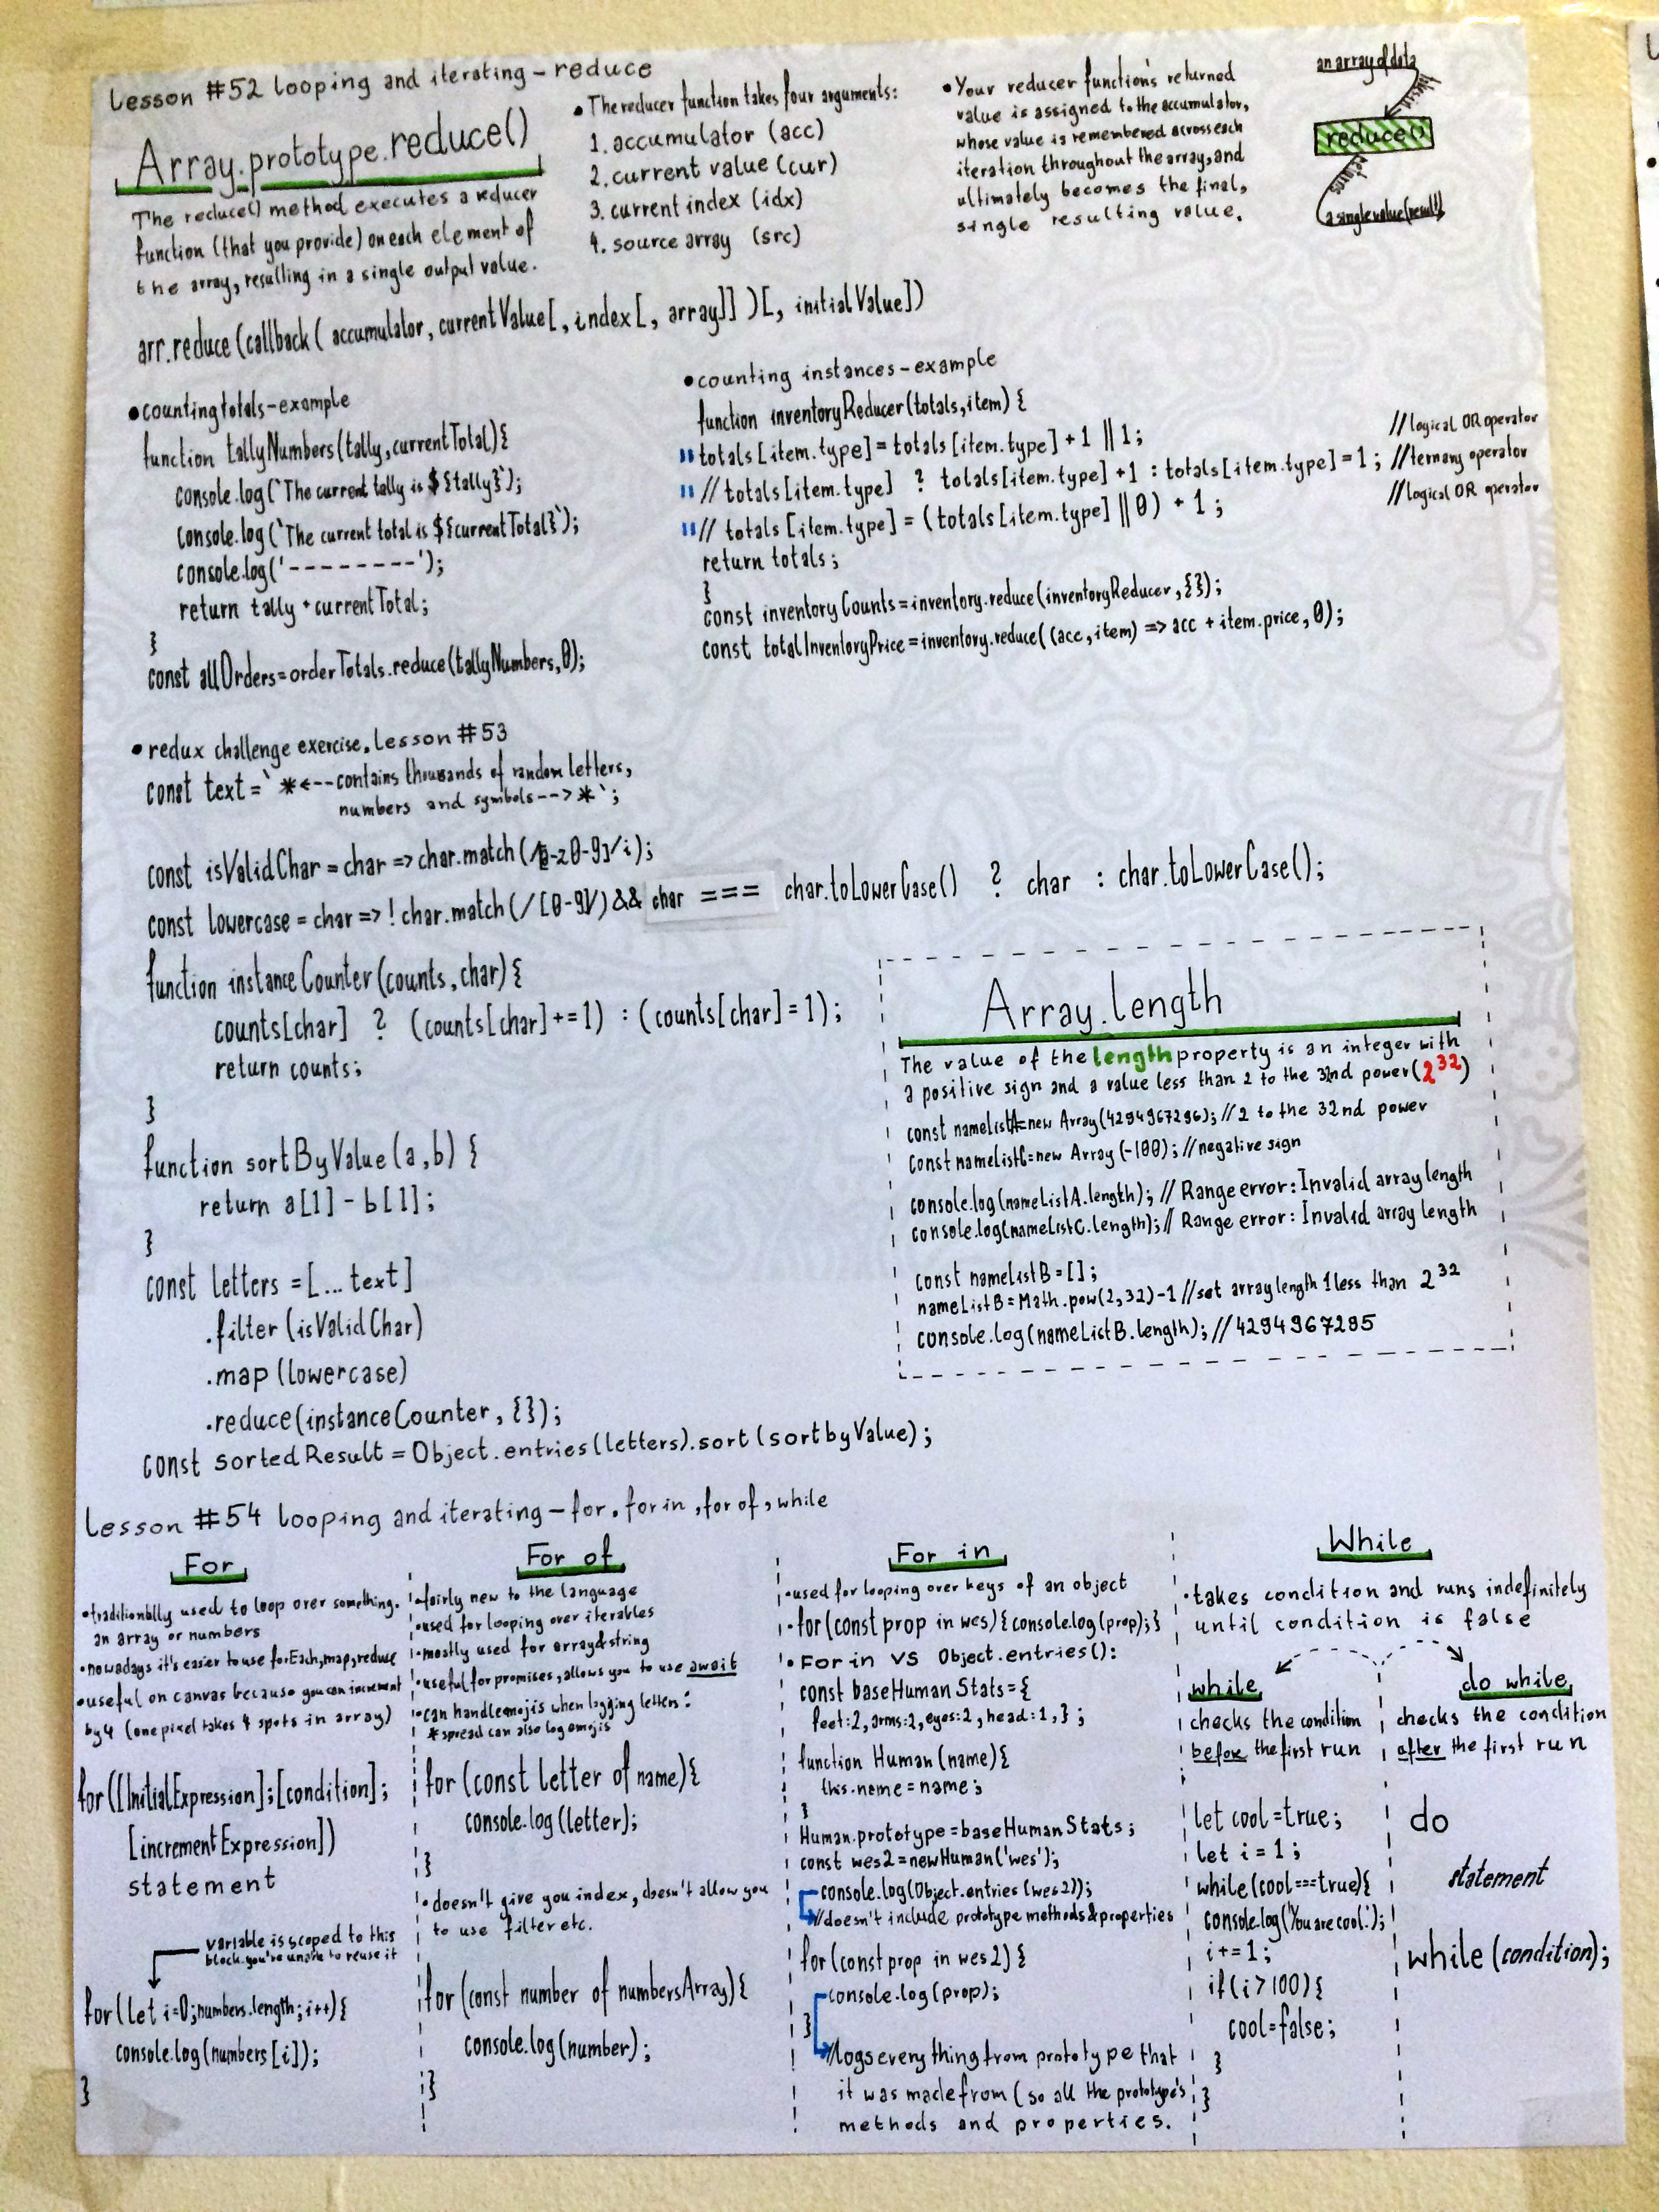 Lesson #52 looping and iterating - reduce
Array.prototype.reduce()
The reduce() method executes a reducer
function (that you provide) on each element of
the array, resulting in a single output value.
• The reducer function takes four arguments:
1. accumulator (acc)
2. current value (cur)
3. current index (idx)
4. source array (src)
• Your reducer function's returned
value is assigned to the accumulator,
whose value is remembered across each
iteration throughout the array, and
ultimately becomes the final,
single resulting value.
an array of data
reduce()
returns
a single value (result)
arr.reduce(callback( accumulator, currentValue[, index[, array]] )[, initialValue])
• counting totals - example
function tallyNumbers(tally, currentTotal){
console.log(`The current tally is ${tally}`);
console.log(`The current total is ${currentTotal}`);
console.log('--------');
return tally + currentTotal;
}
const allOrders = orderTotals.reduce(tallyNumbers, 0);
• counting instances - example
function inventoryReducer(totals, item) {
totals[item.type] = totals[item.type] + 1 || 1; // logical OR operator
// totals[item.type] ? totals[item.type] +1 : totals[item.type] = 1; // ternary operator
// totals[item.type] = (totals[item.type] || 0) + 1; // logical OR operator
return totals;
}
const inventoryCounts = inventory.reduce(inventoryReducer, {});
const totalInventoryPrice = inventory.reduce((acc, item) => acc + item.price, 0);
• redux challenge exercise, Lesson #53
const text = `*<--contains thousands of random letters,
numbers and symbols-->*`;
const isValidChar = char => char.match(/[a-z0-9]/i);
const lowercase = char => ! char.match(/[0-9]/) && char === char.toLowerCase() ? char : char.toLowerCase();
function instanceCounter(counts, char) {
counts[char] ? (counts[char] += 1) : (counts[char] = 1);
return counts;
}
function sortByValue(a, b) {
return a[1] - b[1];
}
const letters = [...text]
.filter(isValidChar)
.map(lowercase)
.reduce(instanceCounter, {});
const sortedResult = Object.entries(letters).sort(sortbyValue);
Array.length
The value of the length property is an integer with
a positive sign and a value less than 2 to the 32nd power (2³²)
const namelistA = new Array(4294967296); // 2 to the 32nd power
const namelistC = new Array(-100); // negative sign
console.log(nameListA.length); // Range error: Invalid array length
console.log(nameListC.length); // Range error: Invalid array length
const namelistB = [];
nameListB = Math.pow(2,32)-1 // set array length 1 less than 2³²
console.log(nameListB.length); // 4294967295
Lesson #54 looping and iterating - for, for in, for of, while
For
• traditionally used to loop over something.
an array or numbers
• nowadays it's easier to use forEach, map, reduce
• useful on canvas because you can increment
by 4 (one pixel takes 4 spots in array)
for([InitialExpression]; [condition];
[incrementExpression])
statement
variable is scoped to this
block. you're unable to reuse it
for(let i=0; numbers.length; i++){
console.log(numbers[i]);
}
For of
• fairly new to the language
• used for looping over iterables
• mostly used for array & string
• useful for promises, allows you to use await
• can handle emojis when logging letters:
*spread can also log emojis
for (const letter of name){
console.log(letter);
}
• doesn't give you index, doesn't allow you
to use filter etc.
for (const number of numbersArray){
console.log(number);
}
For in
• used for looping over keys of an object
• for(const prop in wes){console.log(prop);}
• For in VS Object.entries():
const baseHumanStats = {
feet:2, arms:2, eyes:2, head:1, };
function Human(name){
this.name = name;
}
Human.prototype = baseHumanStats;
const wes2 = new Human('wes');
console.log(Object.entries(wes2));
// doesn't include prototype methods & properties
for(const prop in wes2) {
console.log(prop);
}
// logs everything from prototype that
it was made from (so all the prototype's
methods and properties.
While
• takes condition and runs indefinitely
until condition is false
while
checks the condition
before the first run
let cool = true;
let i = 1;
while(cool === true){
console.log('You are cool.');
i += 1;
if(i > 100){
cool = false;
}
}
do while
checks the condition
after the first run
do
statement
while (condition);